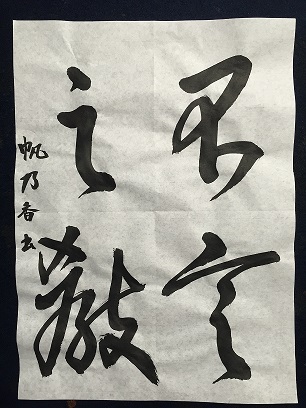 不言
之教
帆乃香書